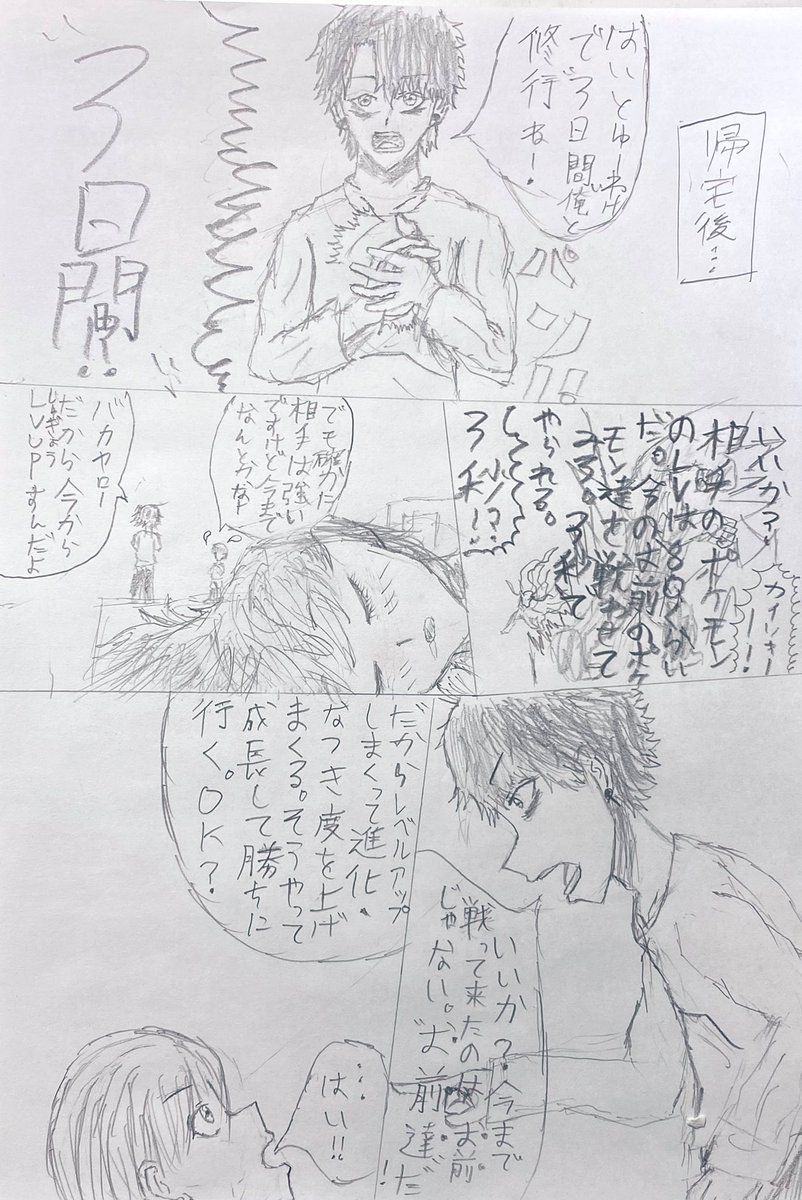 帰宅後…
はいとゆーわけ
で3日間俺と
修行ね!
3日間!!
いいか?
相手のポケモン
のLvは80くらい
だ。今のお前のポケ
モン達を戦わせて
みろ。3秒で
やられる。
カイリキー
ー!
3秒!!
でも確かに
相手は強い
ですけど今まで
なんとかなr
バカヤロー
だから今から
LvUPすんだよ
いいか?今まで
戦って来たのはお前
じゃない。"お前達"だ!
だからレベルアップ
しまくって進化・
なつき度を上げ
まくる。そうやって
成長して勝ちに
行く。OK?
…はい!!